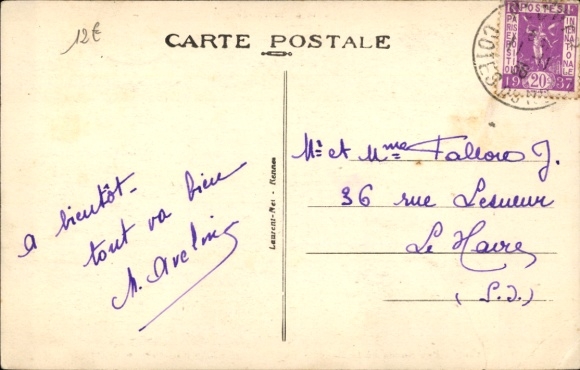 12€
CARTE POSTALE
POSTES
PARIS EXPOSITION INTERNATIONALE
1937
20
COTES
Mr et Mme Fallou J.
36 rue Lesueur
Le Havre
(S.I.)
a bientôt
tout va bien
M. Aveline
Laurent-Nel - Rennes